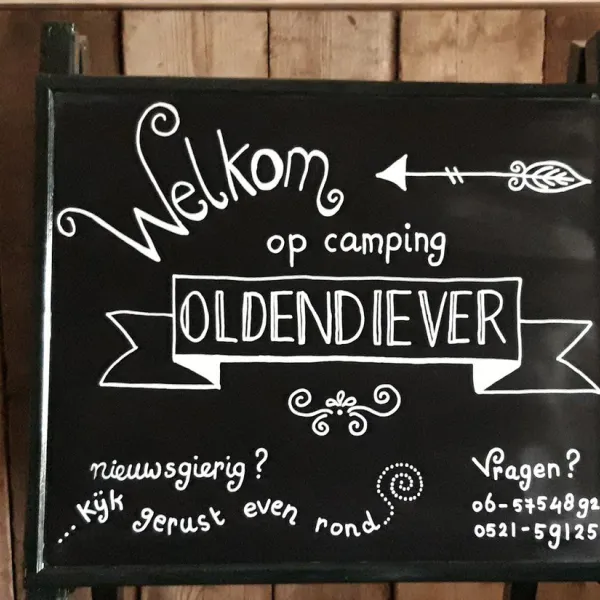 Welkom
op camping
OLDENDIEVER
nieuwsgierig?
...kijk gerust even rond...
Vragen?
06-5754892
0521-59125